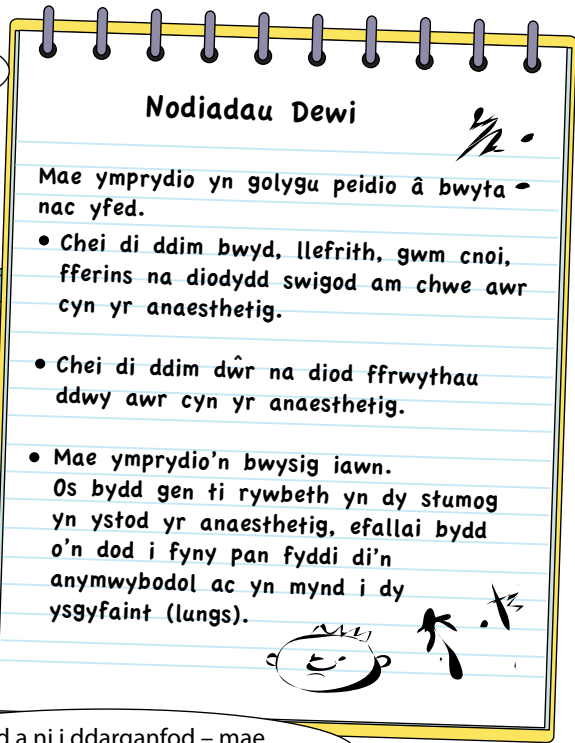 Nodiadau Dewi
Mae ymprydio yn golygu peidio â bwyta
nac yfed.
• Chei di ddim bwyd, llefrith, gwm cnoi,
fferins na diodydd swigod am chwe awr
cyn yr anaesthetig.
• Chei di ddim dŵr na diod ffrwythau
ddwy awr cyn yr anaesthetig.
• Mae ymprydio’n bwysig iawn.
Os bydd gen ti rywbeth yn dy stumog
yn ystod yr anaesthetig, efallai bydd
o’n dod i fyny pan fyddi di’n
anymwybodol ac yn mynd i dy
ysgyfaint (lungs).
a ni i ddarganfod – mae